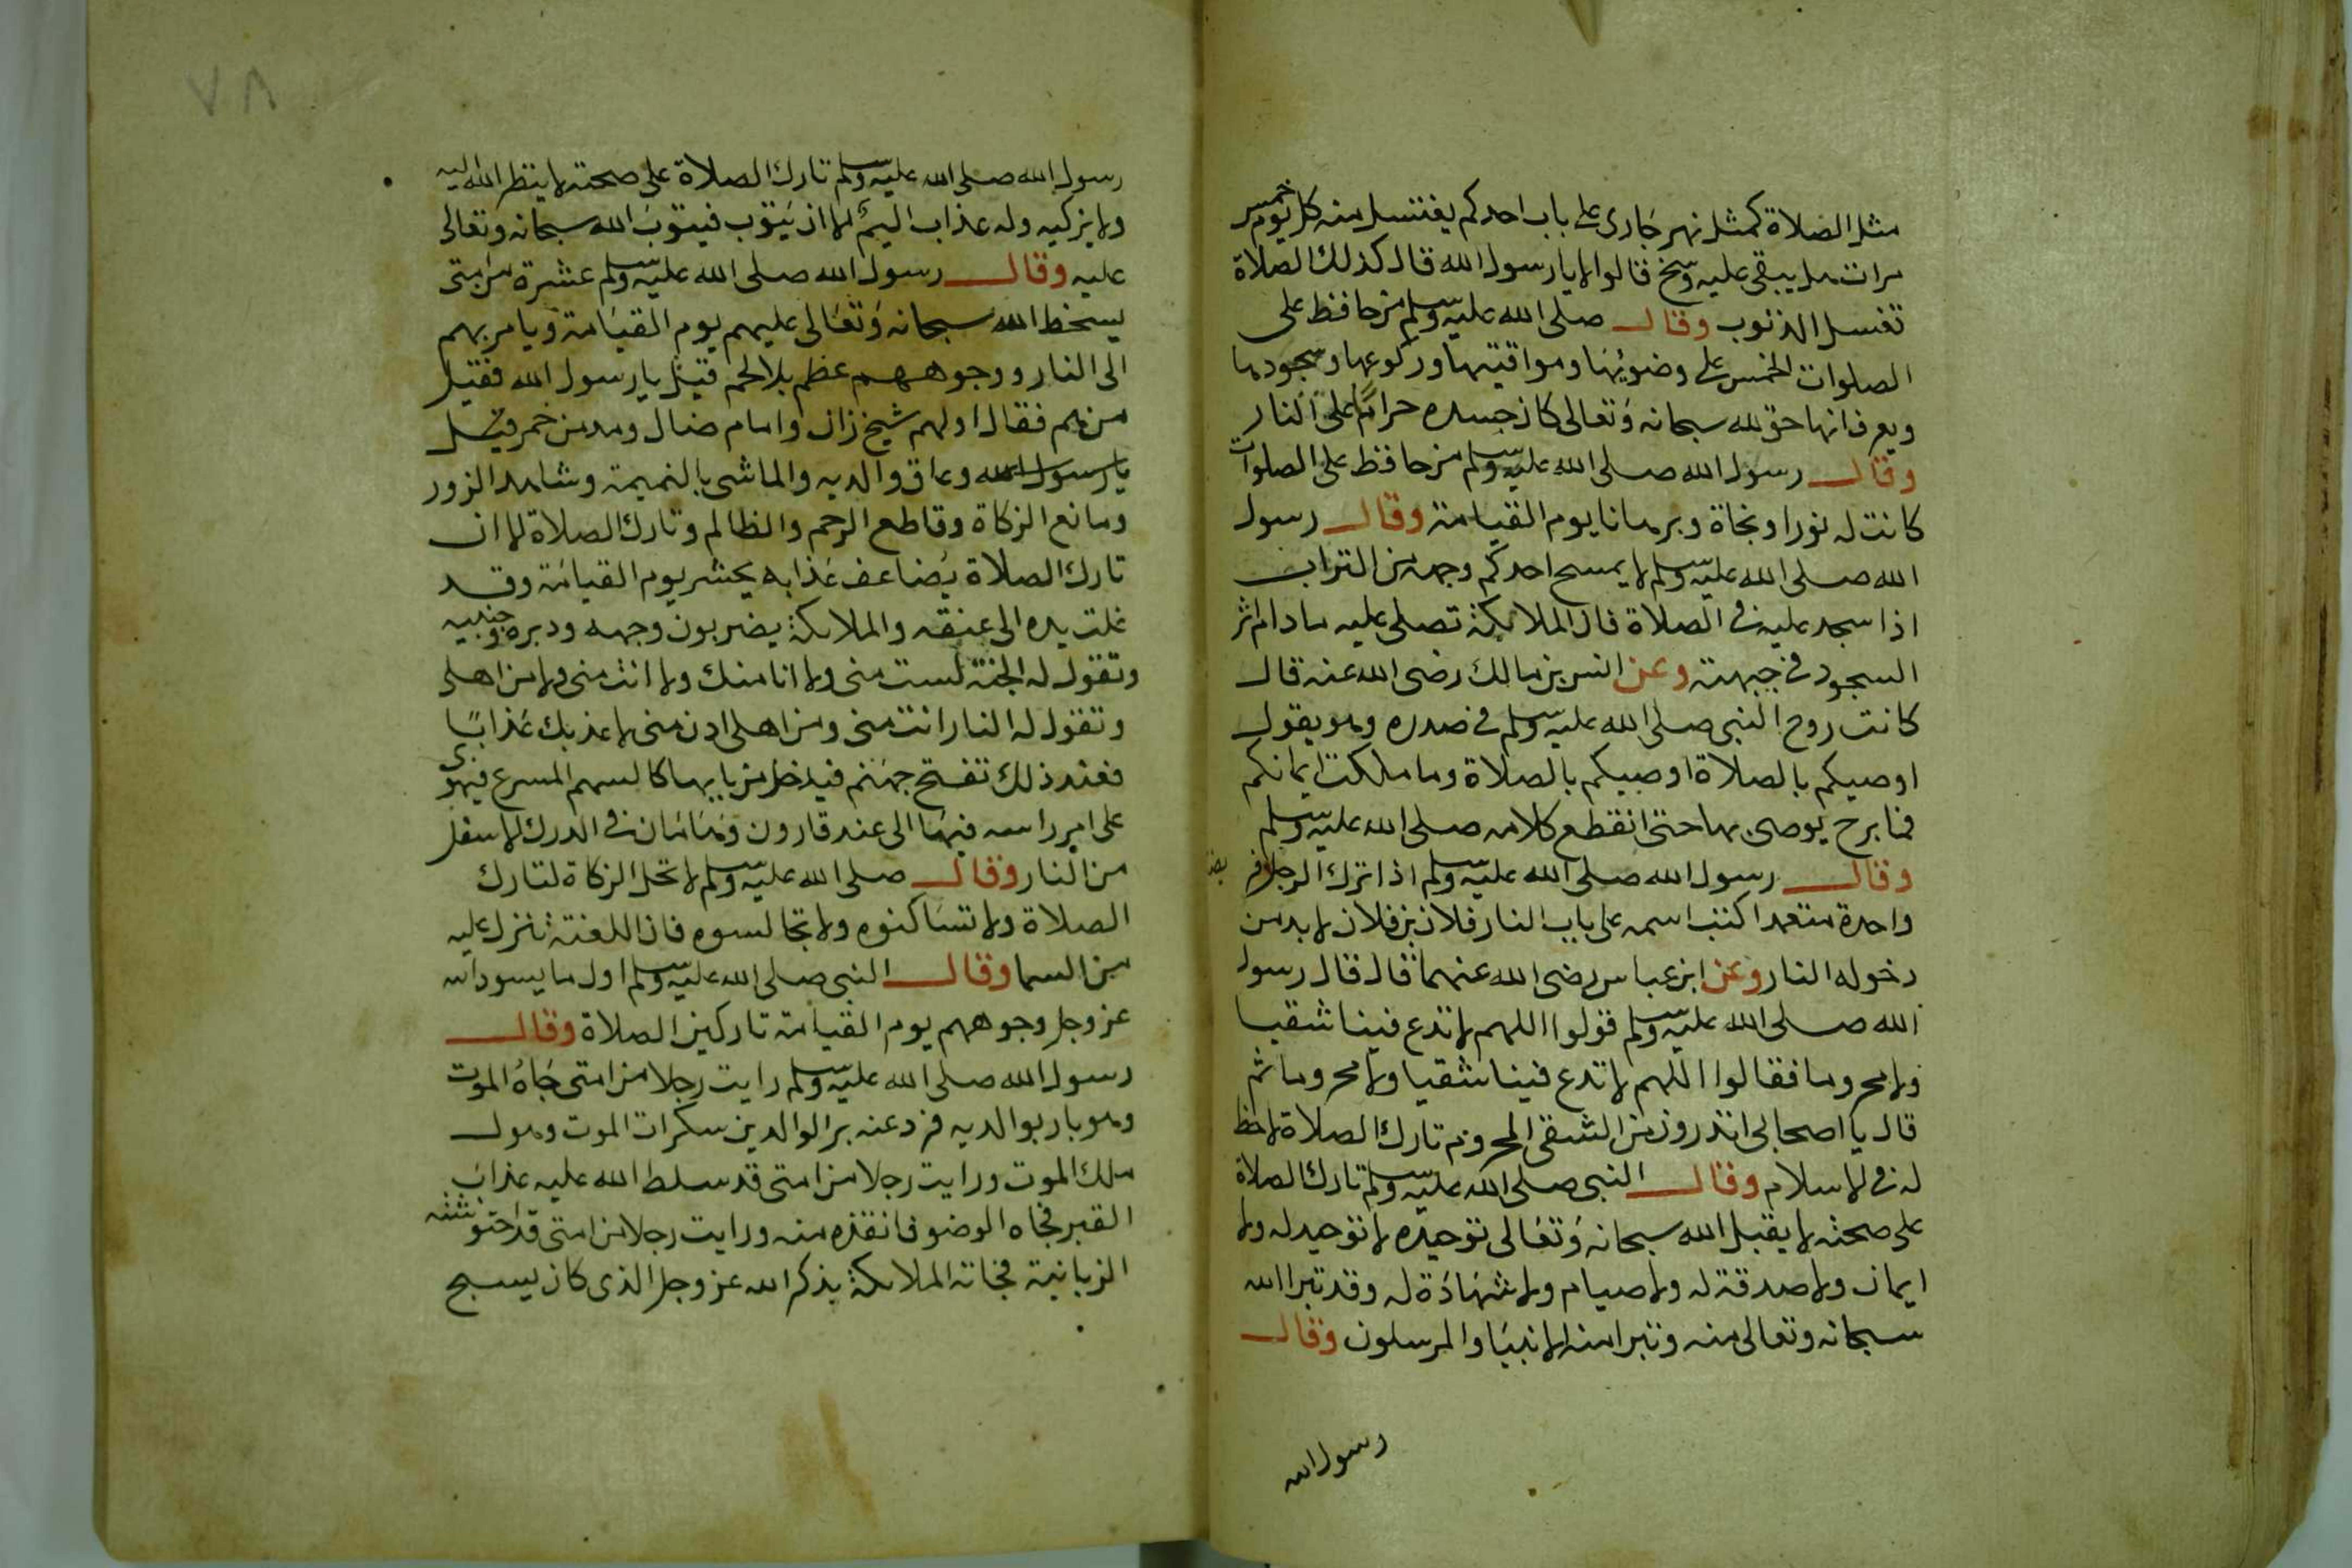 مثل الصلاة كمثل نهر جارى على باب احدكم يغتسل منه كل يوم خمس
مرات هل يبقى عليه وسخ قالوا لا يا رسول الله قال كذلك الصلاة
تغسل الذنوب وقال صلى الله عليه وسلم من حافظ على
الصلوات الخمس على وضوئها ومواقيتها وركوعها وسجودها
ويعرف انها حق لله سبحانه وتعالى كان جسده حراما على النار
وقال رسول الله صلى الله عليه وسلم من حافظ على الصلوات
كانت له نورا ونجاة وبرهانا يوم القيامة وقال رسول
الله صلى الله عليه وسلم لا يمسح احدكم وجهه من التراب
اذا سجد عليه فى الصلاة فان الملائكة تصلى عليه مادام اثر
السجود فى جبهته وعن انس بن مالك رضى الله عنه قال
كانت روح النبى صلى الله عليه وسلم فى صدره وهو يقول
اوصيكم بالصلاة اوصيكم بالصلاة وما ملكت ايمانكم
فما برح يوصى بها حتى انقطع كلامه صلى الله عليه وسلم
وقال رسول الله صلى الله عليه وسلم اذا ترك الرجل
واحدة متعمدا كتب اسمه على باب النار فلان بن فلان لا بد من
دخوله النار وعن ابن عباس رضى الله عنهما قال قال رسول
الله صلى الله عليه وسلم قولوا اللهم لا تدع فينا شقيا
ولا محروما فقالوا اللهم لا تدع فينا شقيا ولا محروما ثم
قال يا اصحابى اتدرون من الشقى المحروم تارك الصلاة لا حظ
له فى الاسلام وقال النبى صلى الله عليه وسلم تارك الصلاة
على صحته لا يقبل الله سبحانه وتعالى توحيده لا توحيد له ولا
ايمان ولا صدقة له ولا صيام ولا شهادة له وقد تبرا الله
سبحانه وتعالى منه وتبرا منه الانبيا والمرسلون وقال
رسول الله
٧٨
رسول الله صلى الله عليه وسلم تارك الصلاة على صحته لا ينظر الله اليه
ولا يزكيه وله عذاب اليم الا ان يتوب فيتوب الله سبحانه وتعالى
عليه وقال رسول الله صلى الله عليه وسلم عشرة من امتى
يسخط الله سبحانه وتعالى عليهم يوم القيامة ويامر بهم
الى النار ووجوههم عظم بلا لحم قيل يا رسول الله فقيل
من هم فقال اولهم شيخ زان وامام ضال ومدمن خمر قيل
يا رسول الله وعاق والديه والماشى بالنميمة وشاهد الزور
ومانع الزكاة وقاطع الرحم والظالم وتارك الصلاة الا ان
تارك الصلاة يضاعف عذابه يحشر يوم القيامة وقد
غلت يده الى عنقه والملائكة يضربون وجهه ودبره وجنبيه
وتقول له الجنة لست منى ولا انا منك ولا انت منى ولا من اهلى
وتقول له النار انت منى ومن اهلى ادن منى لا عذبك عذابا
فعند ذلك تفتح جهنم فيدخل من بابها كالسهم المسرع فيهوى
على ام راسه فيها الى عند قارون وهامان فى الدرك الاسفل
من النار وقال صلى الله عليه وسلم لا تحل الزكاة لتارك
الصلاة ولا تساكنوه ولا تجالسوه فان اللعنة تنزل عليه
من السما وقال النبى صلى الله عليه وسلم اول ما يسود الله
عز وجل وجوههم يوم القيامة تاركين الصلاة وقال
رسول الله صلى الله عليه وسلم رايت رجلا من امتى جاه الموت
وهو بار بوالديه فرد عنه بر الوالدين سكرات الموت وهول
ملك الموت ورايت رجلا من امتى قد سلط الله عليه عذاب
القبر فجاه الوضو فانقذه منه ورايت رجلا من امتى قد احتوشته
الزبانية فجاته الملائكة بذكر الله عز وجل الذى كان يسبح